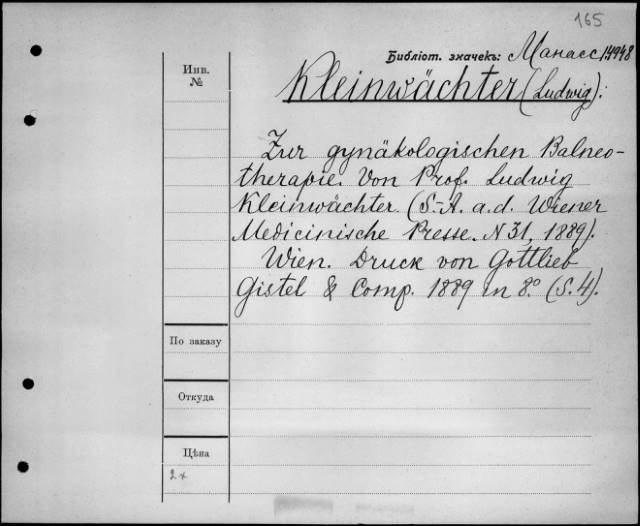 165
Библіот. значекъ: Манасс. 14948
Инв.
№
Kleinwächter (Ludwig):
Zur gynäkologischen Balneo-
therapie. Von Prof. Ludwig
Kleinwächter. (S.-A. a. d. Wiener
Medicinische Presse. N 31, 1889).
Wien. Druck von Gottlieb
Gistel & Comp. 1889 in 8.° (S. 4).
По заказу
Откуда
Цѣна
2 х